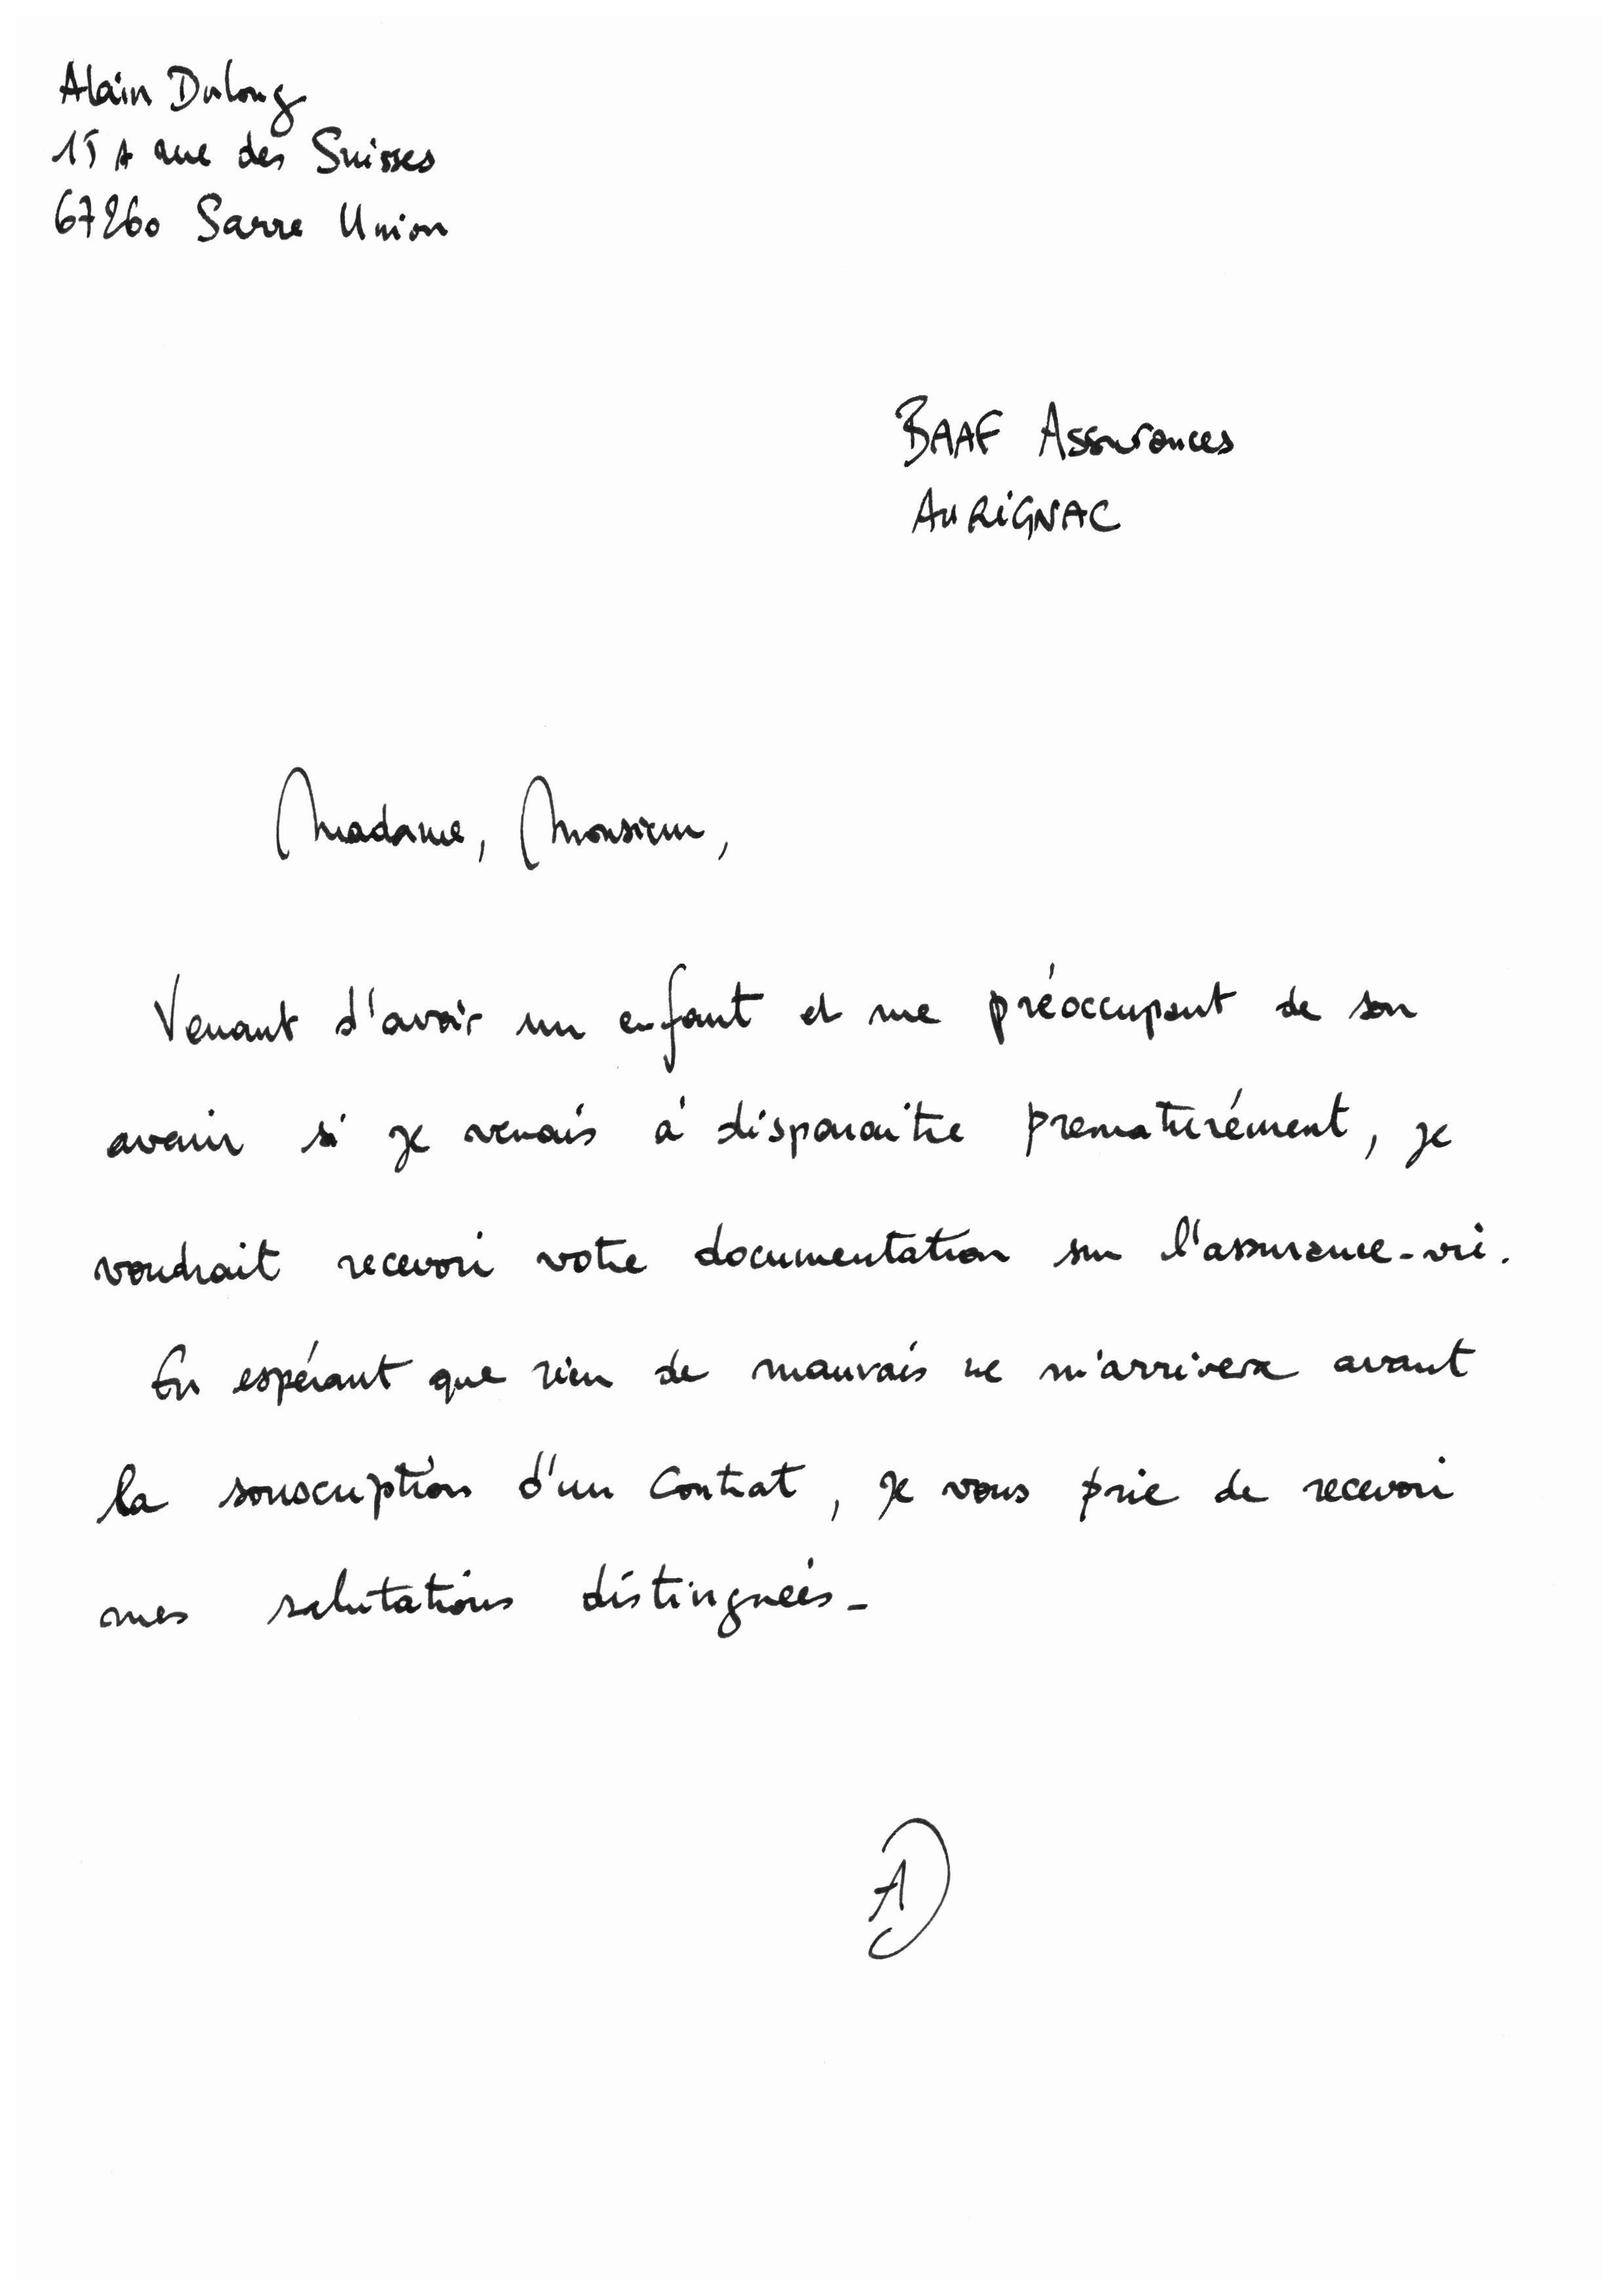 Alain Dulong
15 A rue des Suisses
67260 Sarre Union
BAAF Assurances
AURIGNAC
Madame, Monsieur,
Venant d'avoir un enfant et me préoccupant de son
avenir si je venais à disparaitre prematurément, je
voudrait recevoir votre documentation sur l'assurance-vie.
En espérant que rien de mauvais ne m'arrivera avant
la souscription d'un contrat, je vous prie de recevoir
mes salutations distinguées_
AD